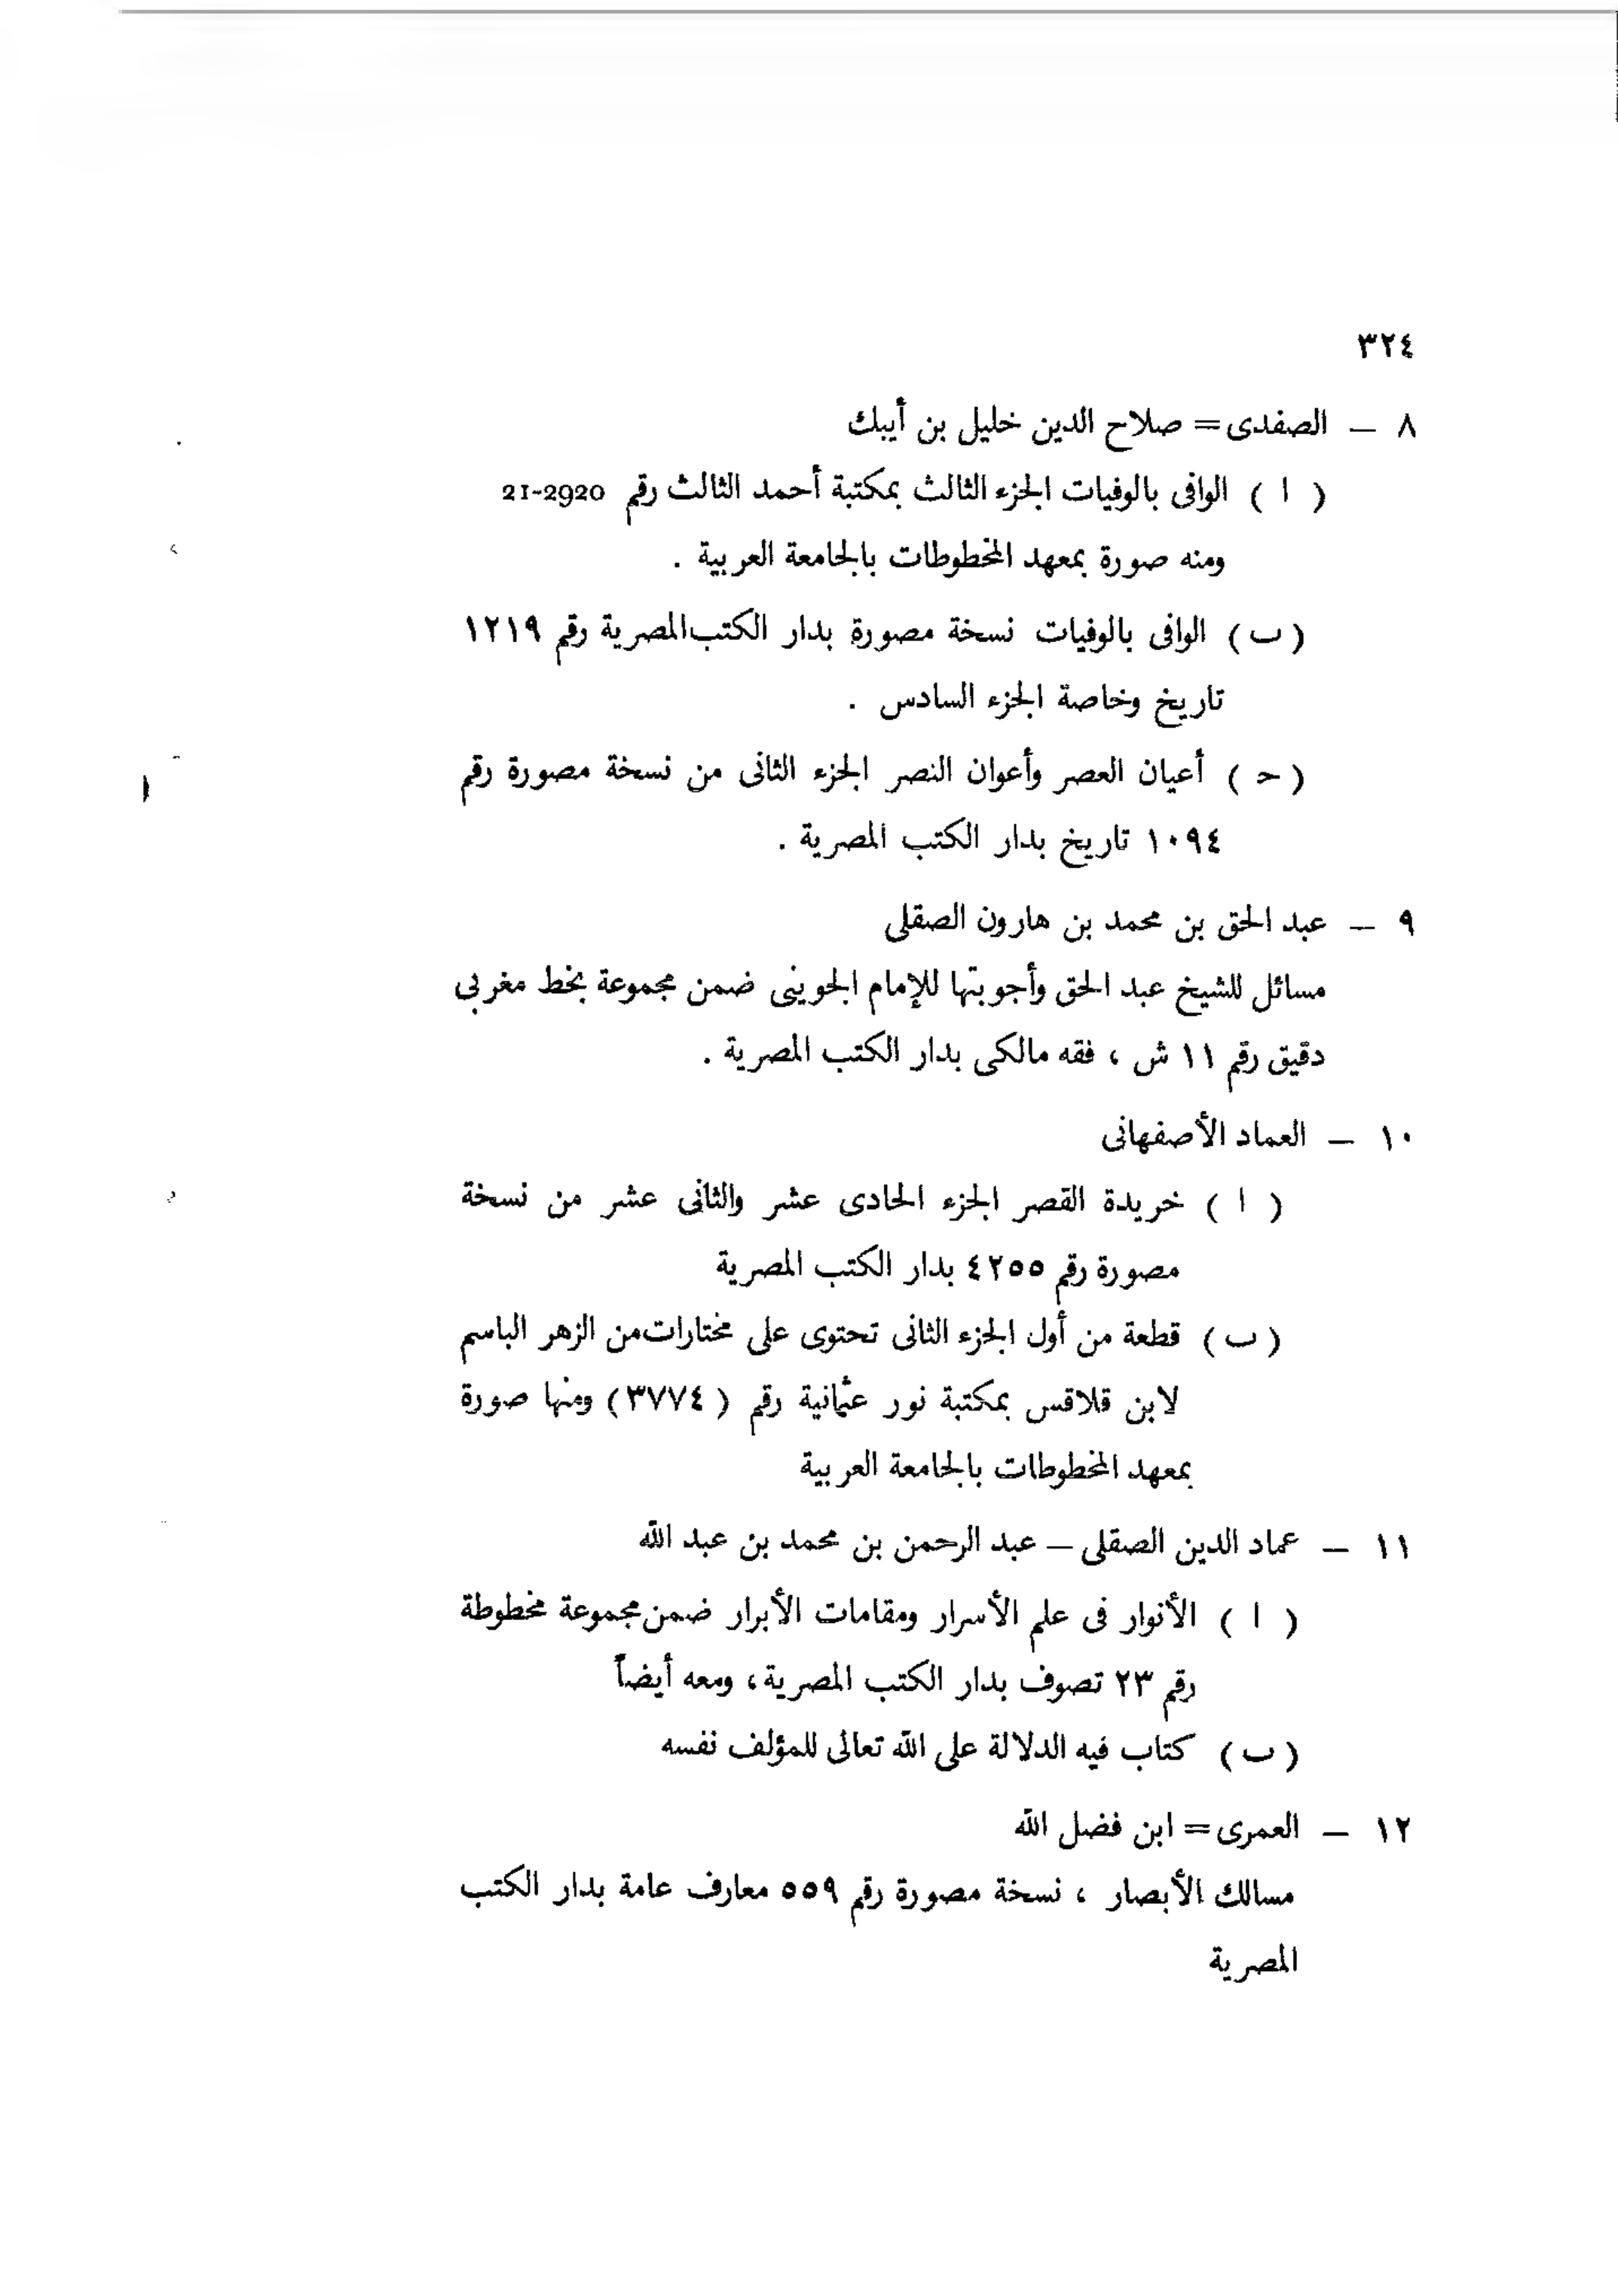 ٣٢٤
٨ — الصفدى = صلاح الدين خليل بن أيبك
( ا ) الوافى بالوفيات الجزء الثالث بمكتبة أحمد الثالث رقم 21-2920
ومنه صورة بمعهد المخطوطات بالجامعة العربية .
( ب ) الوافى بالوفيات نسخة مصورة بدار الكتب المصرية رقم ١٢١٩
تاريخ وخاصة الجزء السادس .
( ح ) أعيان العصر وأعوان النصر الجزء الثانى من نسخة مصورة رقم
١٠٩٤ تاريخ بدار الكتب المصرية .
٩ — عبد الحق بن محمد بن هارون الصقلى
مسائل للشيخ عبد الحق وأجوبتها للإمام الجوينى ضمن مجموعة بخط مغربى
دقيق رقم ١١ ش ، فقه مالكى بدار الكتب المصرية .
١٠ — العماد الأصفهانى
( ا ) خريدة القصر الجزء الحادى عشر والثانى عشر من نسخة
مصورة رقم ٤٢٥٥ بدار الكتب المصرية
( ب ) قطعة من أول الجزء الثانى تحتوى على مختارات من الزهر الباسم
لابن قلاقس بمكتبة نور عثمانية رقم ( ٣٧٧٤ ) ومنها صورة
بمعهد المخطوطات بالجامعة العربية
١١ — عماد الدين الصقلى — عبد الرحمن بن محمد بن عبد الله
( ا ) الأنوار فى علم الأسرار ومقامات الأبرار ضمن مجموعة مخطوطة
رقم ٢٣ تصوف بدار الكتب المصرية ، ومعه أيضاً
( ب ) كتاب فيه الدلالة على الله تعالى للمؤلف نفسه
١٢ — العمرى = ابن فضل الله
مسالك الأبصار ، نسخة مصورة رقم ٥٥٩ معارف عامة بدار الكتب
المصرية